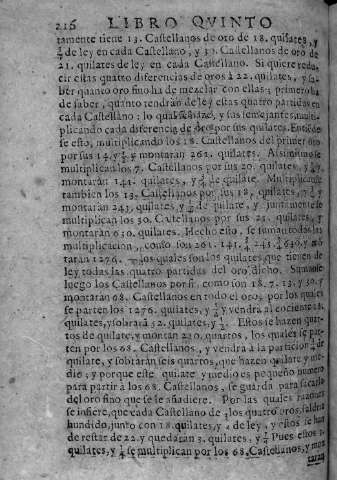 216 LIBRO QVINTO
tamente tiene 13. Castellanos de oro de 18. quilates, y
de ley en cada Castellano, y 30. Castellanos de oro de
21. quilates de ley en cada Castellano. Si quiere redu-
cir estas quatro diferencias de oros à 22. quilates, y sa-
ber quanto oro fino ha de mezclar con ellas; primero ha
de saber, quanto tendràn de ley estas quatro partidas en
cada Castellano: lo qual se haze, y sus semejantes, multi-
plicando cada diferencia de oros por sus quilates. Entiẽde
se esto, multiplicando los 18. Castellanos del primer oro
por sus 14. y montaràn 261. quilates. Assimismo se
multiplican los 7. Castellanos por sus 20. quilates, y
montaràn 141. quilates, y de quilate. Multiplicanse
tambien los 13. Castellanos por los 18. quilates, y
montaràn 243. quilates, y de quilate, y juntamente se
multiplican los 30. Castellanos por sus 21. quilates, y
montaràn 630. quilates. Hecho esto, se suman todas las
multiplicaciones, como son 261. 141. 243. 630, y mõ
tarán 1276. los quales son los quilates, que tienen de
ley todas las quatro partidas del oro dicho. Sumanse
luego los Castellanos por si, como son 18. 7. 13. y 30. y
montaràn 68. Castellanos en todo el oro, por los quales
se parten los 1276. quilates, y vendrá al cociente 18.
quilates, y sobrarà 52. quilates, y Estos se hazen quar-
tos de quilate, y montan 210. quartos, los quales se par-
ten por los 68. Castellanos, y vendrà à la particion de
quilate, y sobraràn seis quartos, que hazen quilate y me-
dio; y porque este quilate y medio es pequeño numero
para partir à los 68. Castellanos, se guarda para sacarlo
del oro fino que se le añadiere. Por las quales razones
se infiere, que cada Castellano de los quatro oros, saldrà
hundido, junto con 18. quilates, y de ley, y estos se han
de restar de 22. y quedaràn 3. quilates, y Pues estos 3.
quilates, y se multiplican por los 68. Castellanos, y mon
taràn